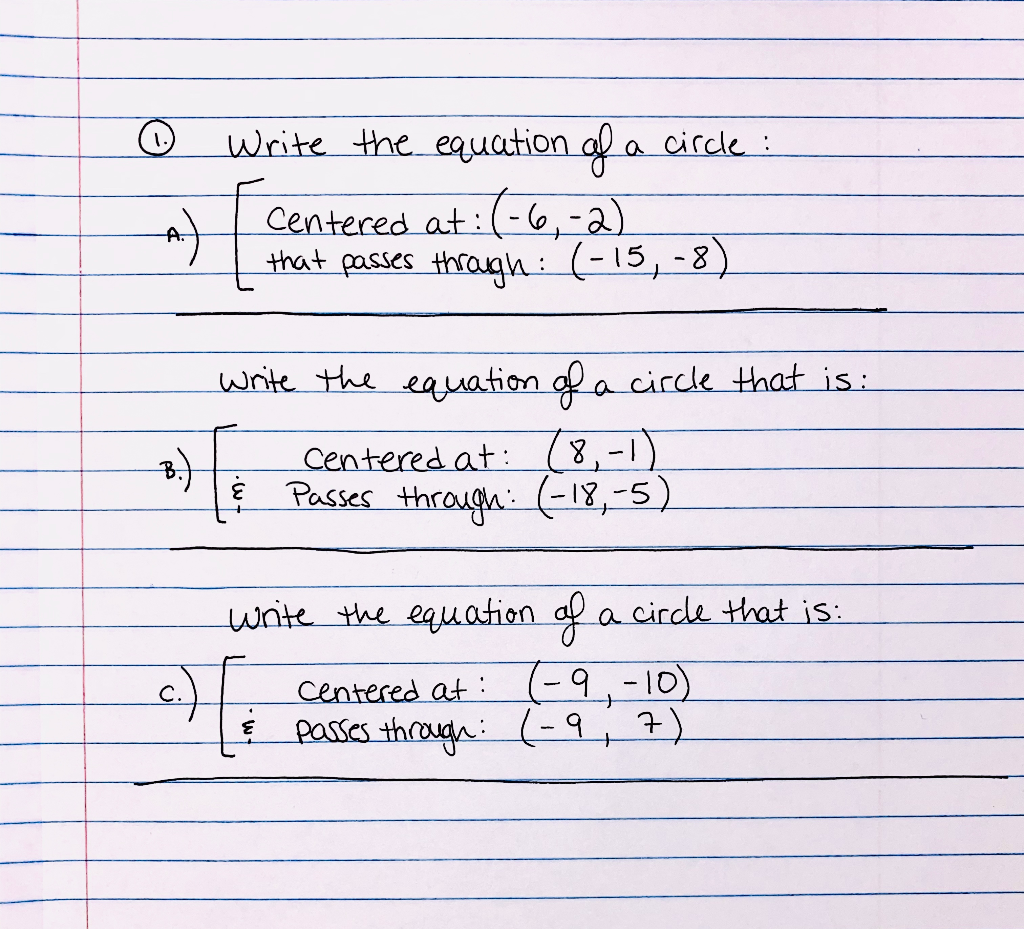 1. Write the equation of a circle :
A.) [ Centered at : (-6, -2)
that passes through : (-15, -8)
Write the equation of a circle that is :
B.) [ Centered at : (8, -1)
& Passes through : (-18, -5)
Write the equation of a circle that is :
C.) [ Centered at : (-9, -10)
& passes through : (-9, 7)